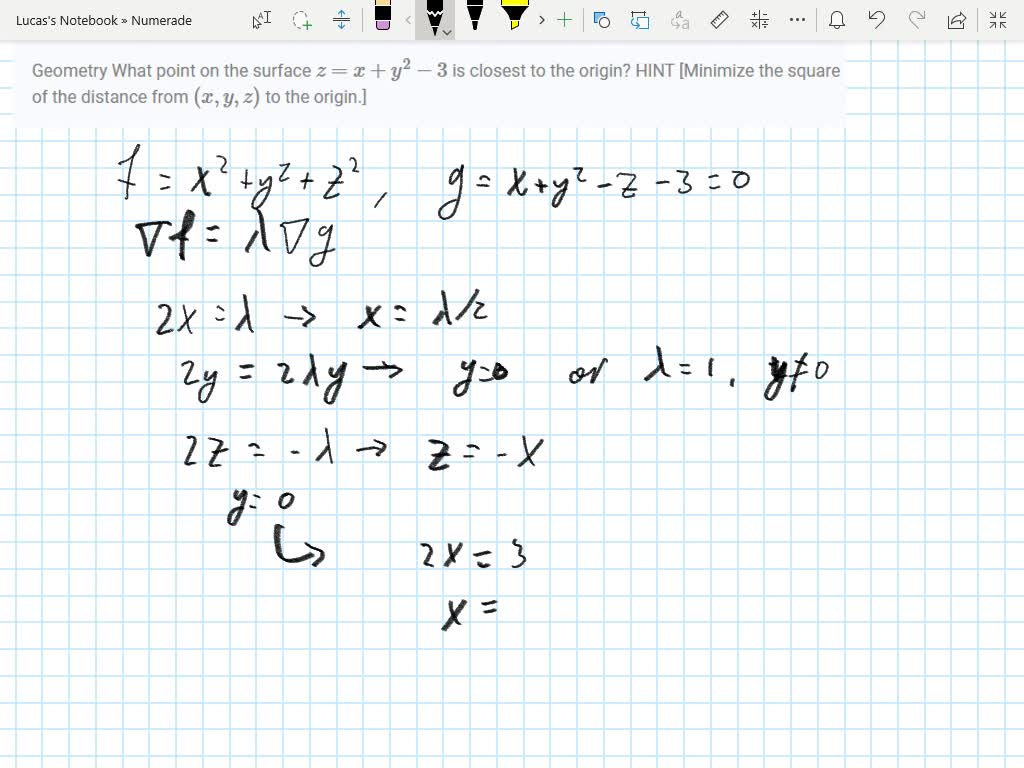 Lucas's Notebook » Numerade
Geometry What point on the surface z = x + y² − 3 is closest to the origin? HINT [Minimize the square
of the distance from (x, y, z) to the origin.]
f = x² + y² + z² , g = x + y² − z − 3 = 0
∇f = λ∇g
2x = λ → x = λ/2
2y = 2λy → y=0 or λ = 1, y≠0
2z = -λ → z = -x
y = 0
↳ 2x = 3
x =